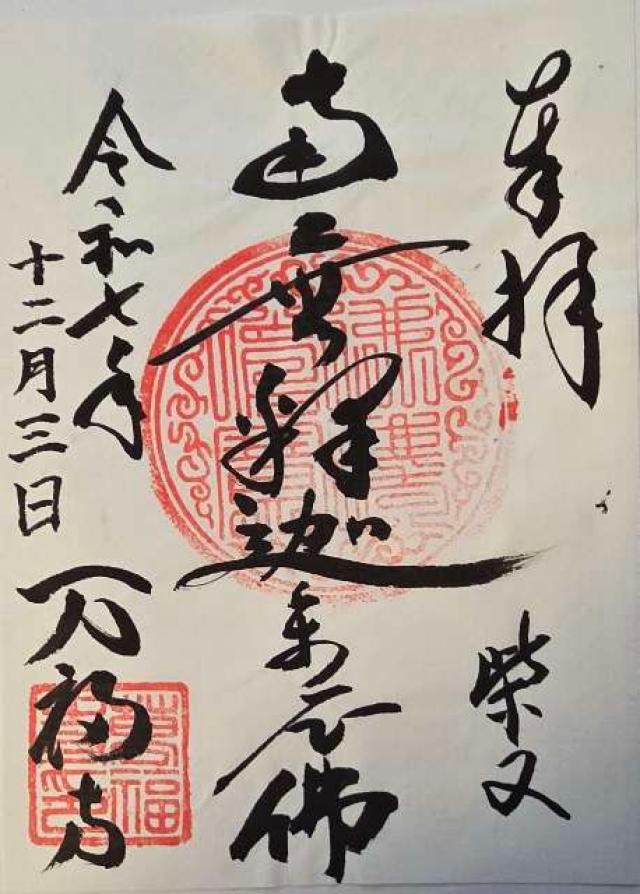 奉拝
柴又
南無釈迦牟尼佛
令和七年
十二月三日
万福寺